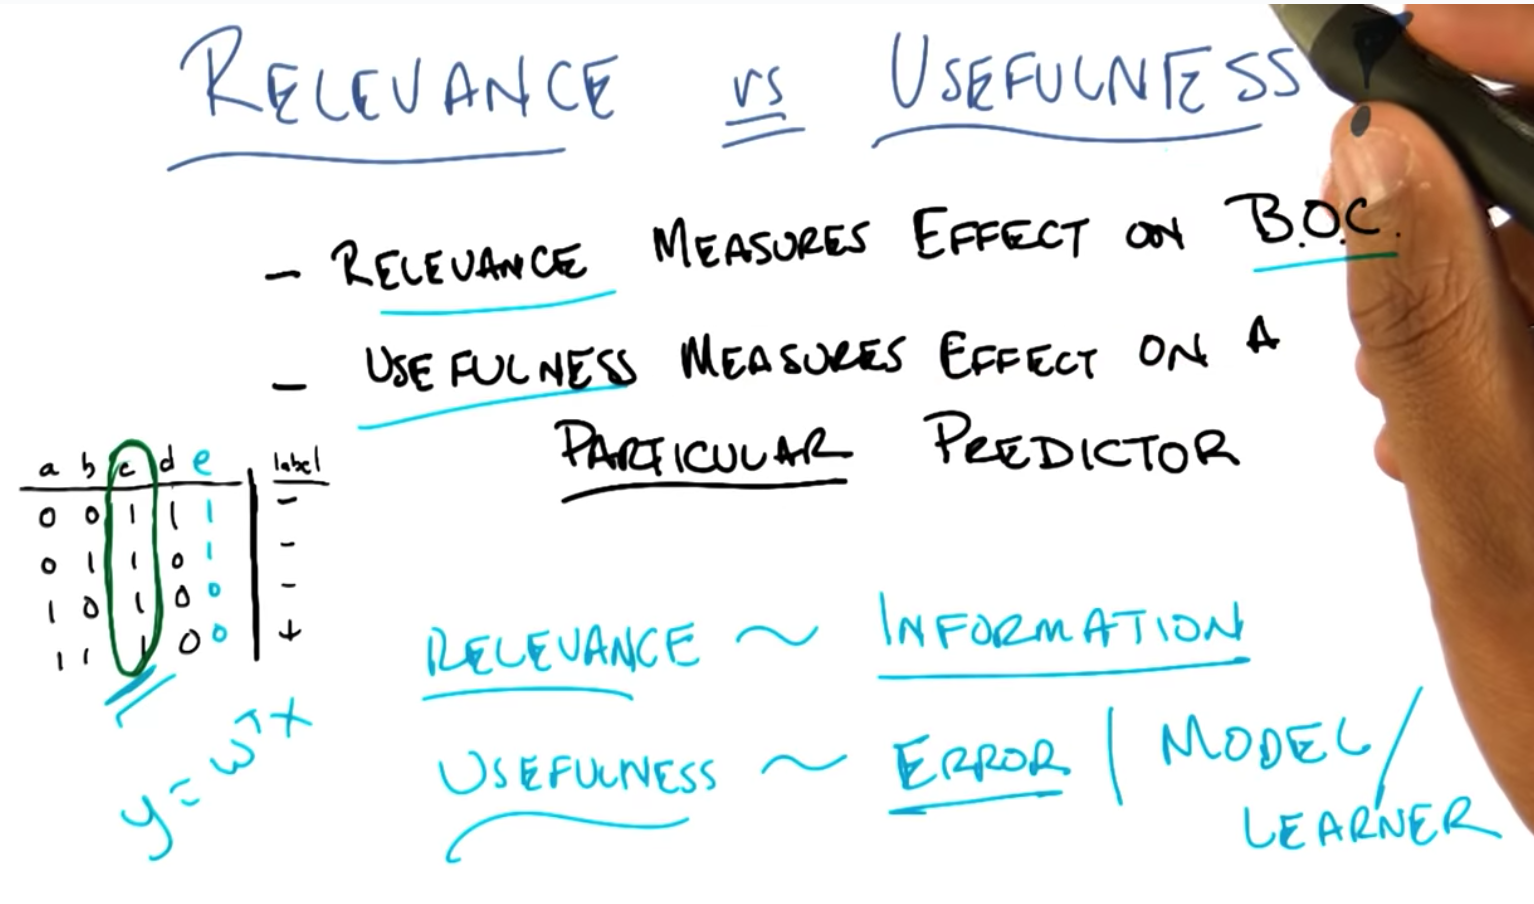 RELEVANCE vs USEFULNESS
- RELEVANCE MEASURES EFFECT ON B.O.C.
- USEFULNESS MEASURES EFFECT ON A
PARTICULAR PREDICTOR
a b c d e label
0 0 1 1 1 -
0 1 1 0 1 -
1 0 1 0 0 -
1 1 1 0 0 +
y = wᵀx
RELEVANCE ~ INFORMATION
USEFULNESS ~ ERROR | MODEL/
LEARNER